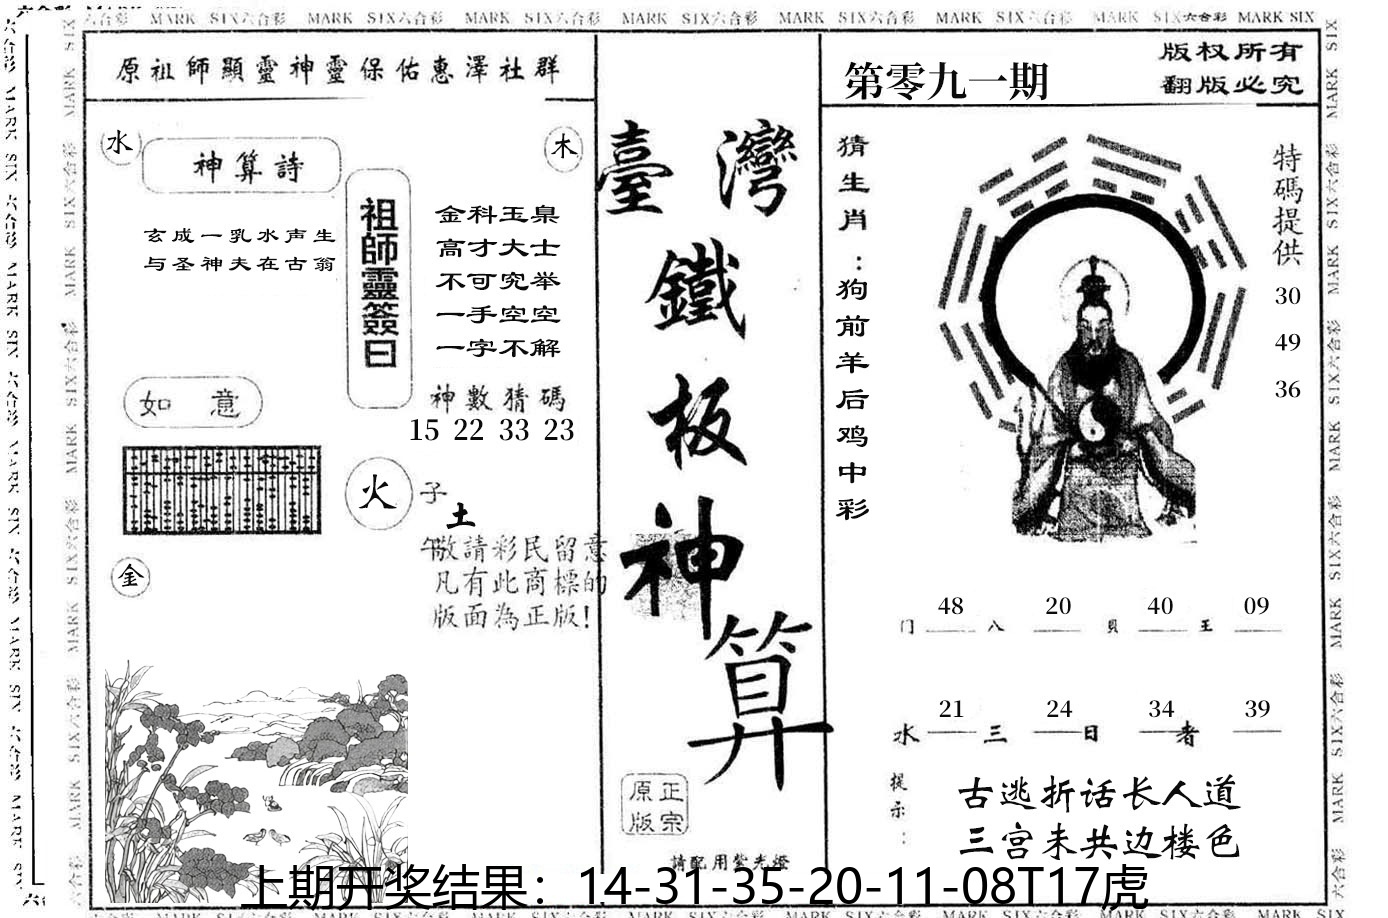 MARK SIX六合彩 MARK SIX六合彩 MARK SIX六合彩 MARK SIX六合彩 MARK SIX六合彩 MARK SIX六合彩 MARK SIX六合彩 MARK SIX
原祖師顯靈神靈保佑惠澤社群
水
神算詩
木
玄成一乳水声生
与圣神夫在古翁
祖師靈簽曰
金科玉臬
高才大士
不可究举
一手空空
一字不解
神數猜碼
15 22 33 23
如意
火
子
土
午
敬請彩民留意
凡有此商標的
版面為正版!
金
臺灣
鐵
板
神
算
原正
版宗
請配用紫光燈
第零九一期
版权所有
翻版必究
猜生肖:狗前羊后鸡中彩
特碼提供
30
49
36
48 20 40 09
门 八 貝 王
21 24 34 39
水 三 日 者
提示:
古逃折话长人道
三宫未共边楼色
上期开奖结果：14-31-35-20-11-08T17虎